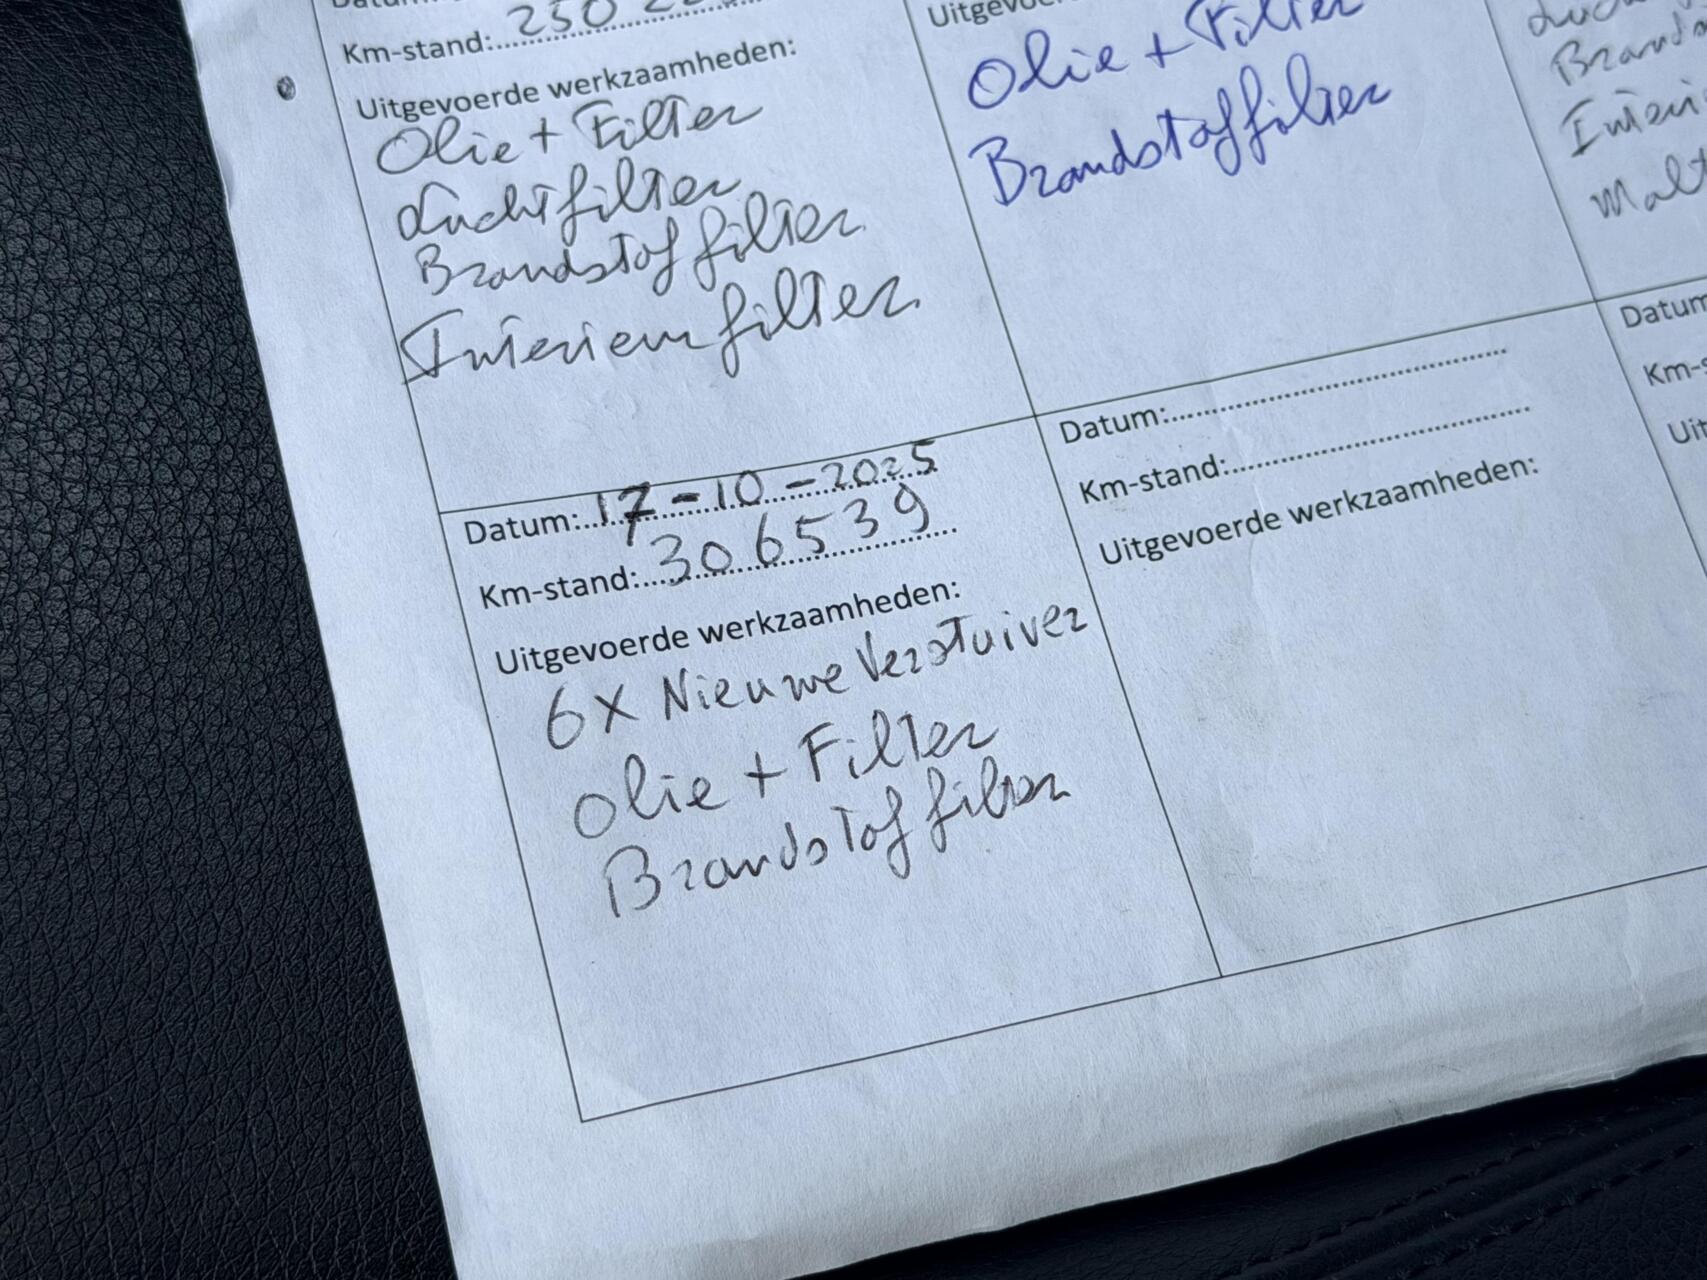 Km-stand: 250
Uitgevoerde werkzaamheden:
Olie + Filter
Luchtfilter
Brandstoffilter
Interieurfilter
Olie + Filter
Brandstoffilter
Datum: 17-10-2025
Km-stand: 306539
Uitgevoerde werkzaamheden:
6x Nieuwe Verstuiver
Olie + Filter
Brandstoffilter
Datum:
Km-stand:
Uitgevoerde werkzaamheden:
Datum